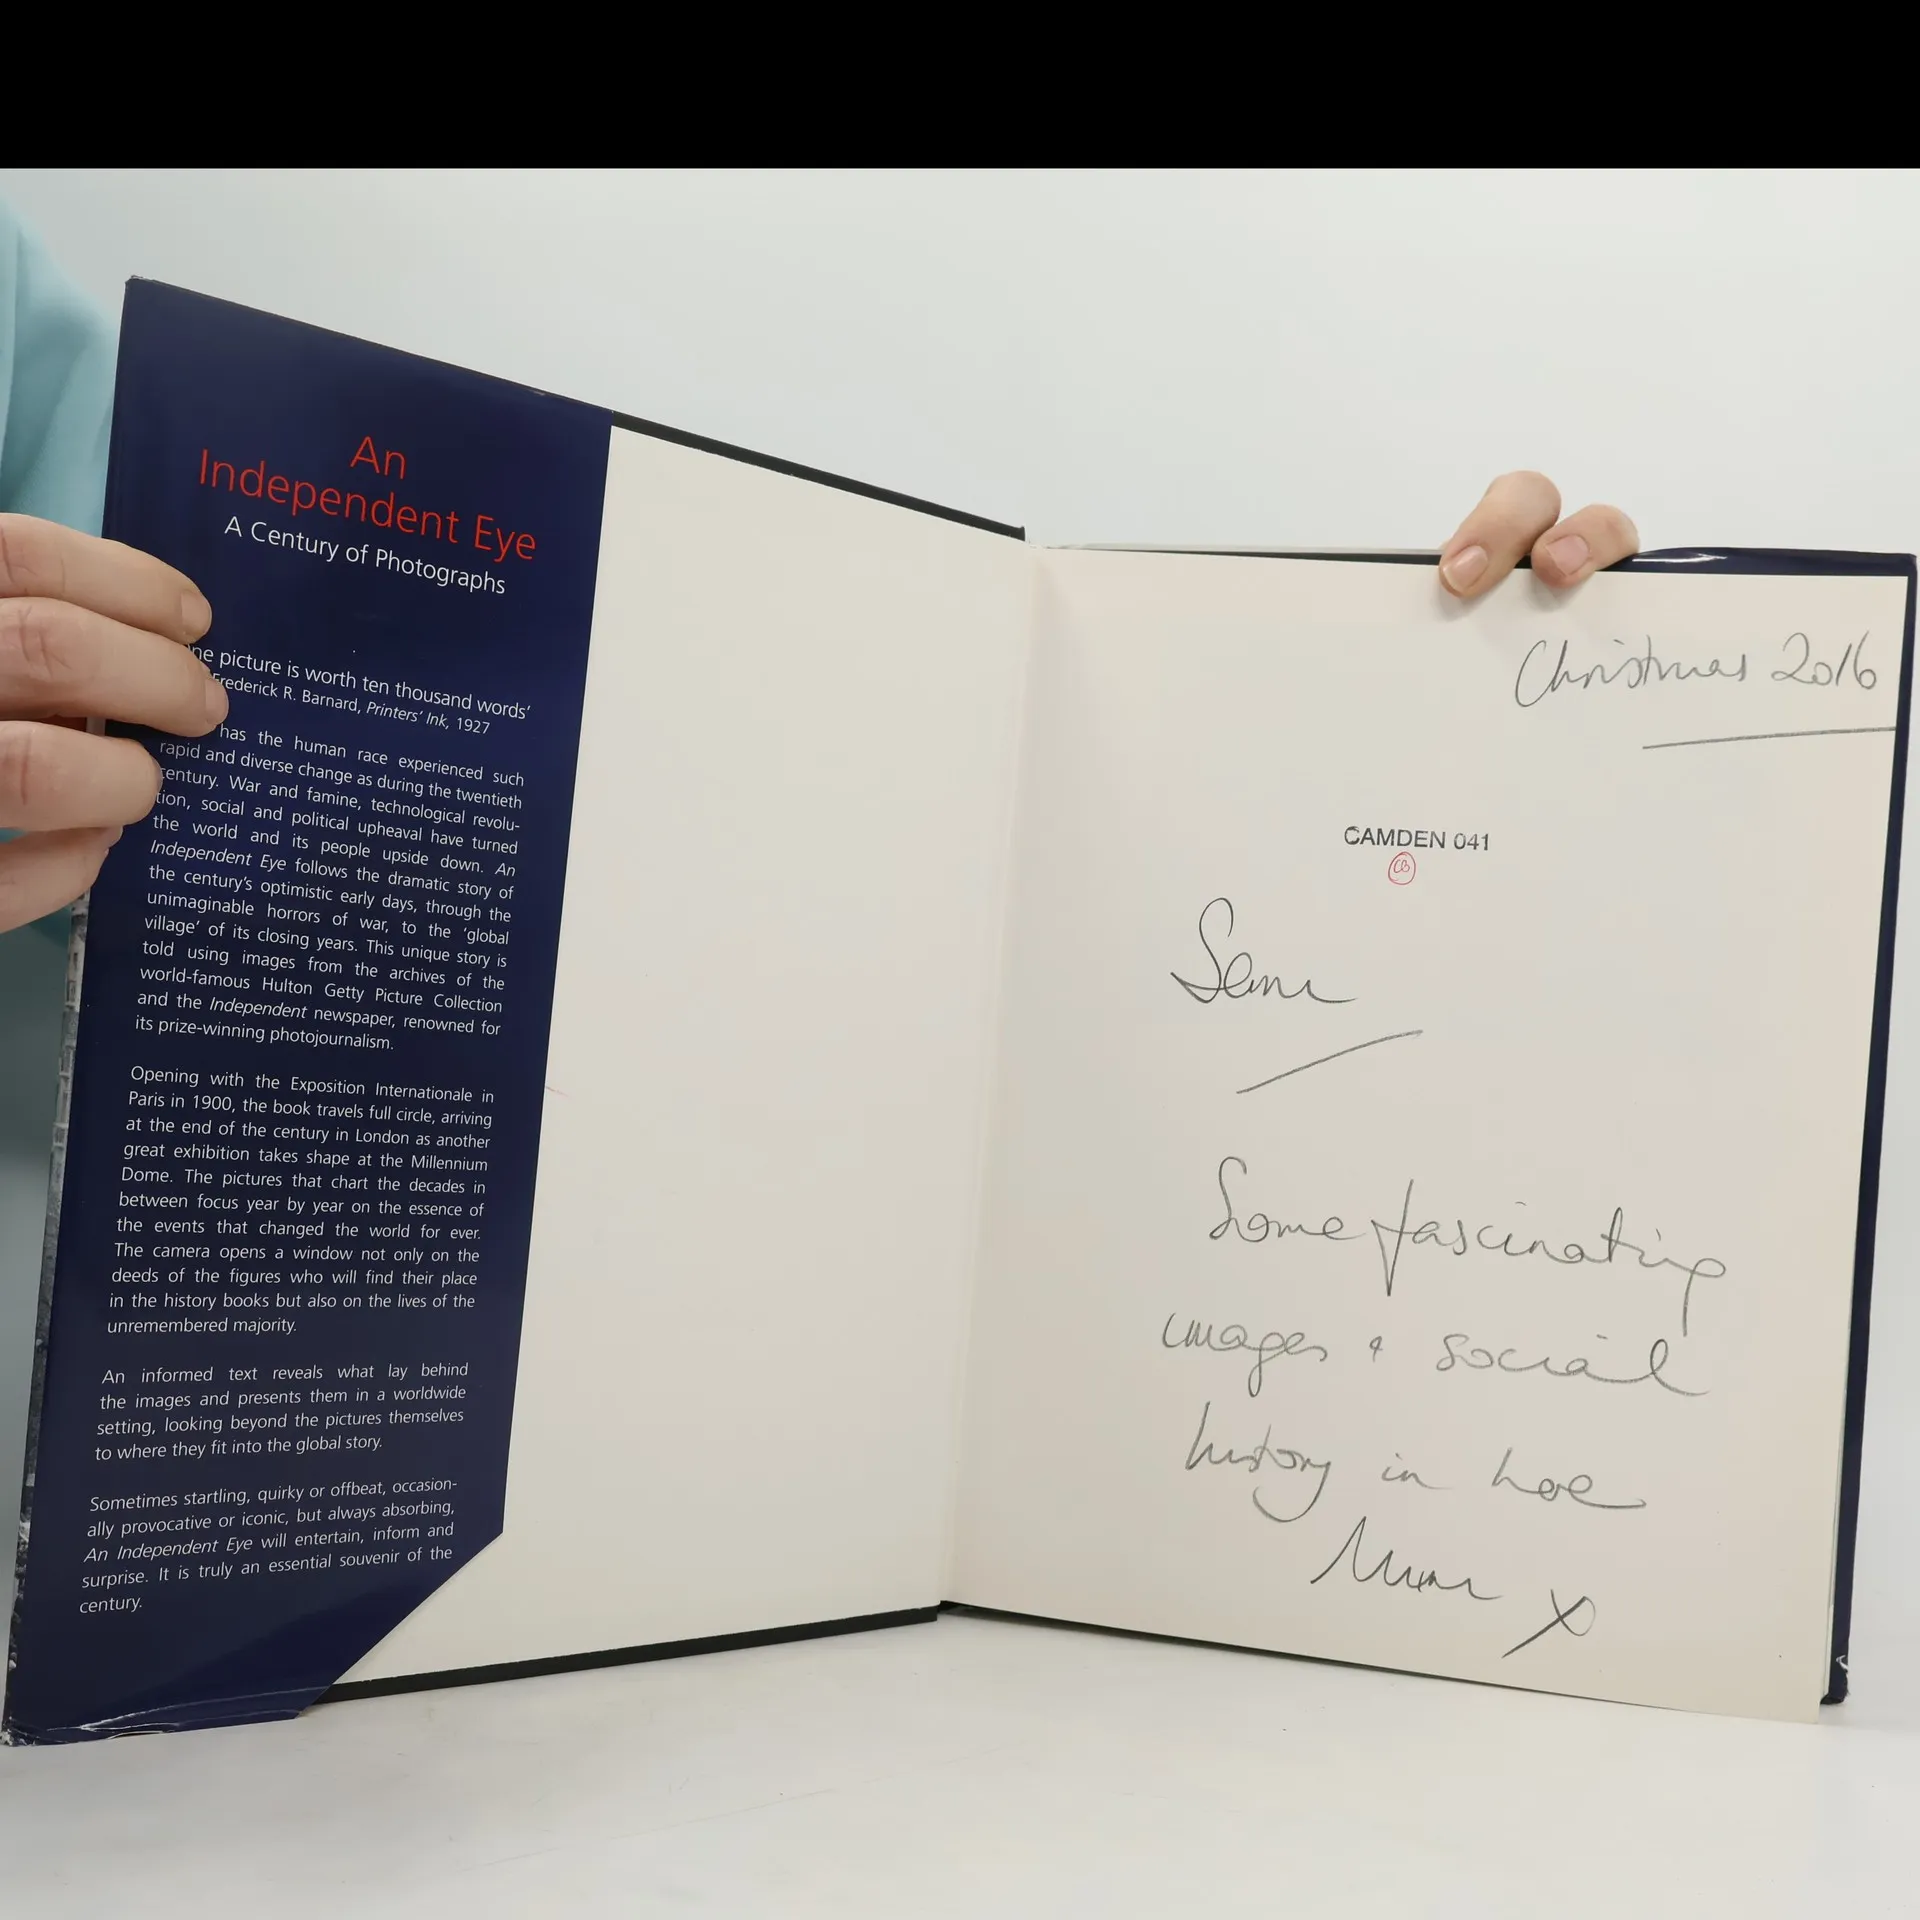 An
Independent Eye
A Century of Photographs
ne picture is worth ten thousand words'
Frederick R. Barnard, Printers' Ink, 1927
has the human race experienced such
rapid and diverse change as during the twentieth
century. War and famine, technological revolu-
tion, social and political upheaval have turned
the world and its people upside down. An
Independent Eye follows the dramatic story of
the century's optimistic early days, through the
unimaginable horrors of war, to the 'global
village' of its closing years. This unique story is
told using images from the archives of the
world-famous Hulton Getty Picture Collection
and the Independent newspaper, renowned for
its prize-winning photojournalism.
Opening with the Exposition Internationale in
Paris in 1900, the book travels full circle, arriving
at the end of the century in London as another
great exhibition takes shape at the Millennium
Dome. The pictures that chart the decades in
between focus year by year on the essence of
the events that changed the world for ever.
The camera opens a window not only on the
deeds of the figures who will find their place
in the history books but also on the lives of the
unremembered majority.
An informed text reveals what lay behind
the images and presents them in a worldwide
setting, looking beyond the pictures themselves
to where they fit into the global story.
Sometimes startling, quirky or offbeat, occasion-
ally provocative or iconic, but always absorbing,
An Independent Eye will entertain, inform and
surprise. It is truly an essential souvenir of the
century.
Christmas 2016
CAMDEN 041
CB
Some fascinating
images & social
history in here
Mum x